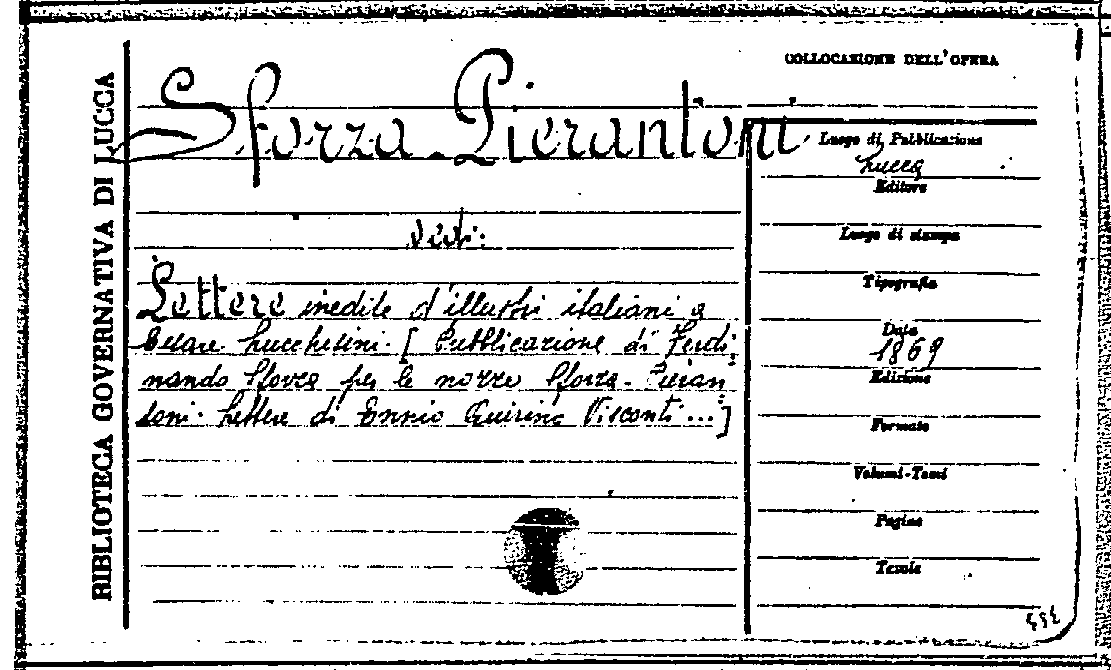 BIBLIOTECA GOVERNATIVA DI LUCCA
COLLOCAZIONE DELL'OPERA
Sforza - Pierantoni
vedi:
Lettere inedite d'illustri italiani a
Cesare Lucchesini. [Pubblicazione di Ferdi
nando Sforza per le nozze Sforza - Pieran
toni. Lettere di Ennio Quirino Visconti ...]
Luogo di Pubblicazione
Lucca
Editore
Luogo di stampa
Tipografia
Data
1869
Edizione
Formato
Volumi-Tomi
Pagine
Tavole